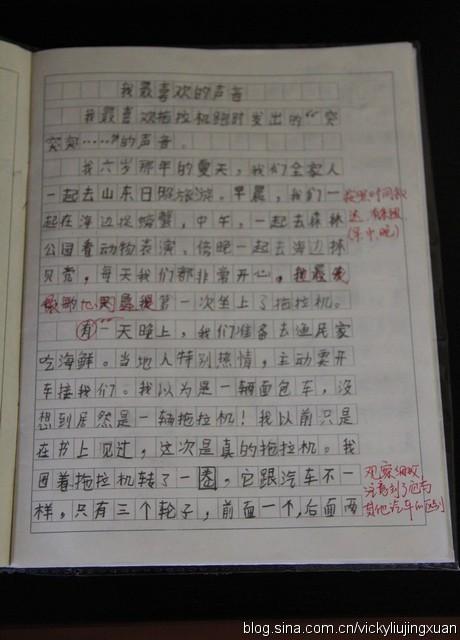 我最喜欢的声音
我最喜欢拖拉机跑时发出的“突
突突……”的声音。
我六岁那年的夏天，我们全家人
一起去山东日照旅游。早晨，我们一
起在海边捉螃蟹，中午，一起去森林
公园看动物表演。傍晚一起去海边拣
贝壳，每天我们都非常开心，
第一次坐上了拖拉机。
有一天晚上，我们准备去渔民家
吃海鲜。当地人特别热情，主动要开
车接我们。我以为是一辆面包车，没
想到居然是一辆拖拉机！我以前只是
在书上见过，这次是真的拖拉机。我
围着拖拉机转了一圈，它跟汽车不一
样，只有三个轮子，前面一个，后面两
按照时间叙
述，有条理
(早、中、晚)
观察细致
注意到了它与
其他汽车的区别
blog.sina.com.cn/vickyliujingxuan